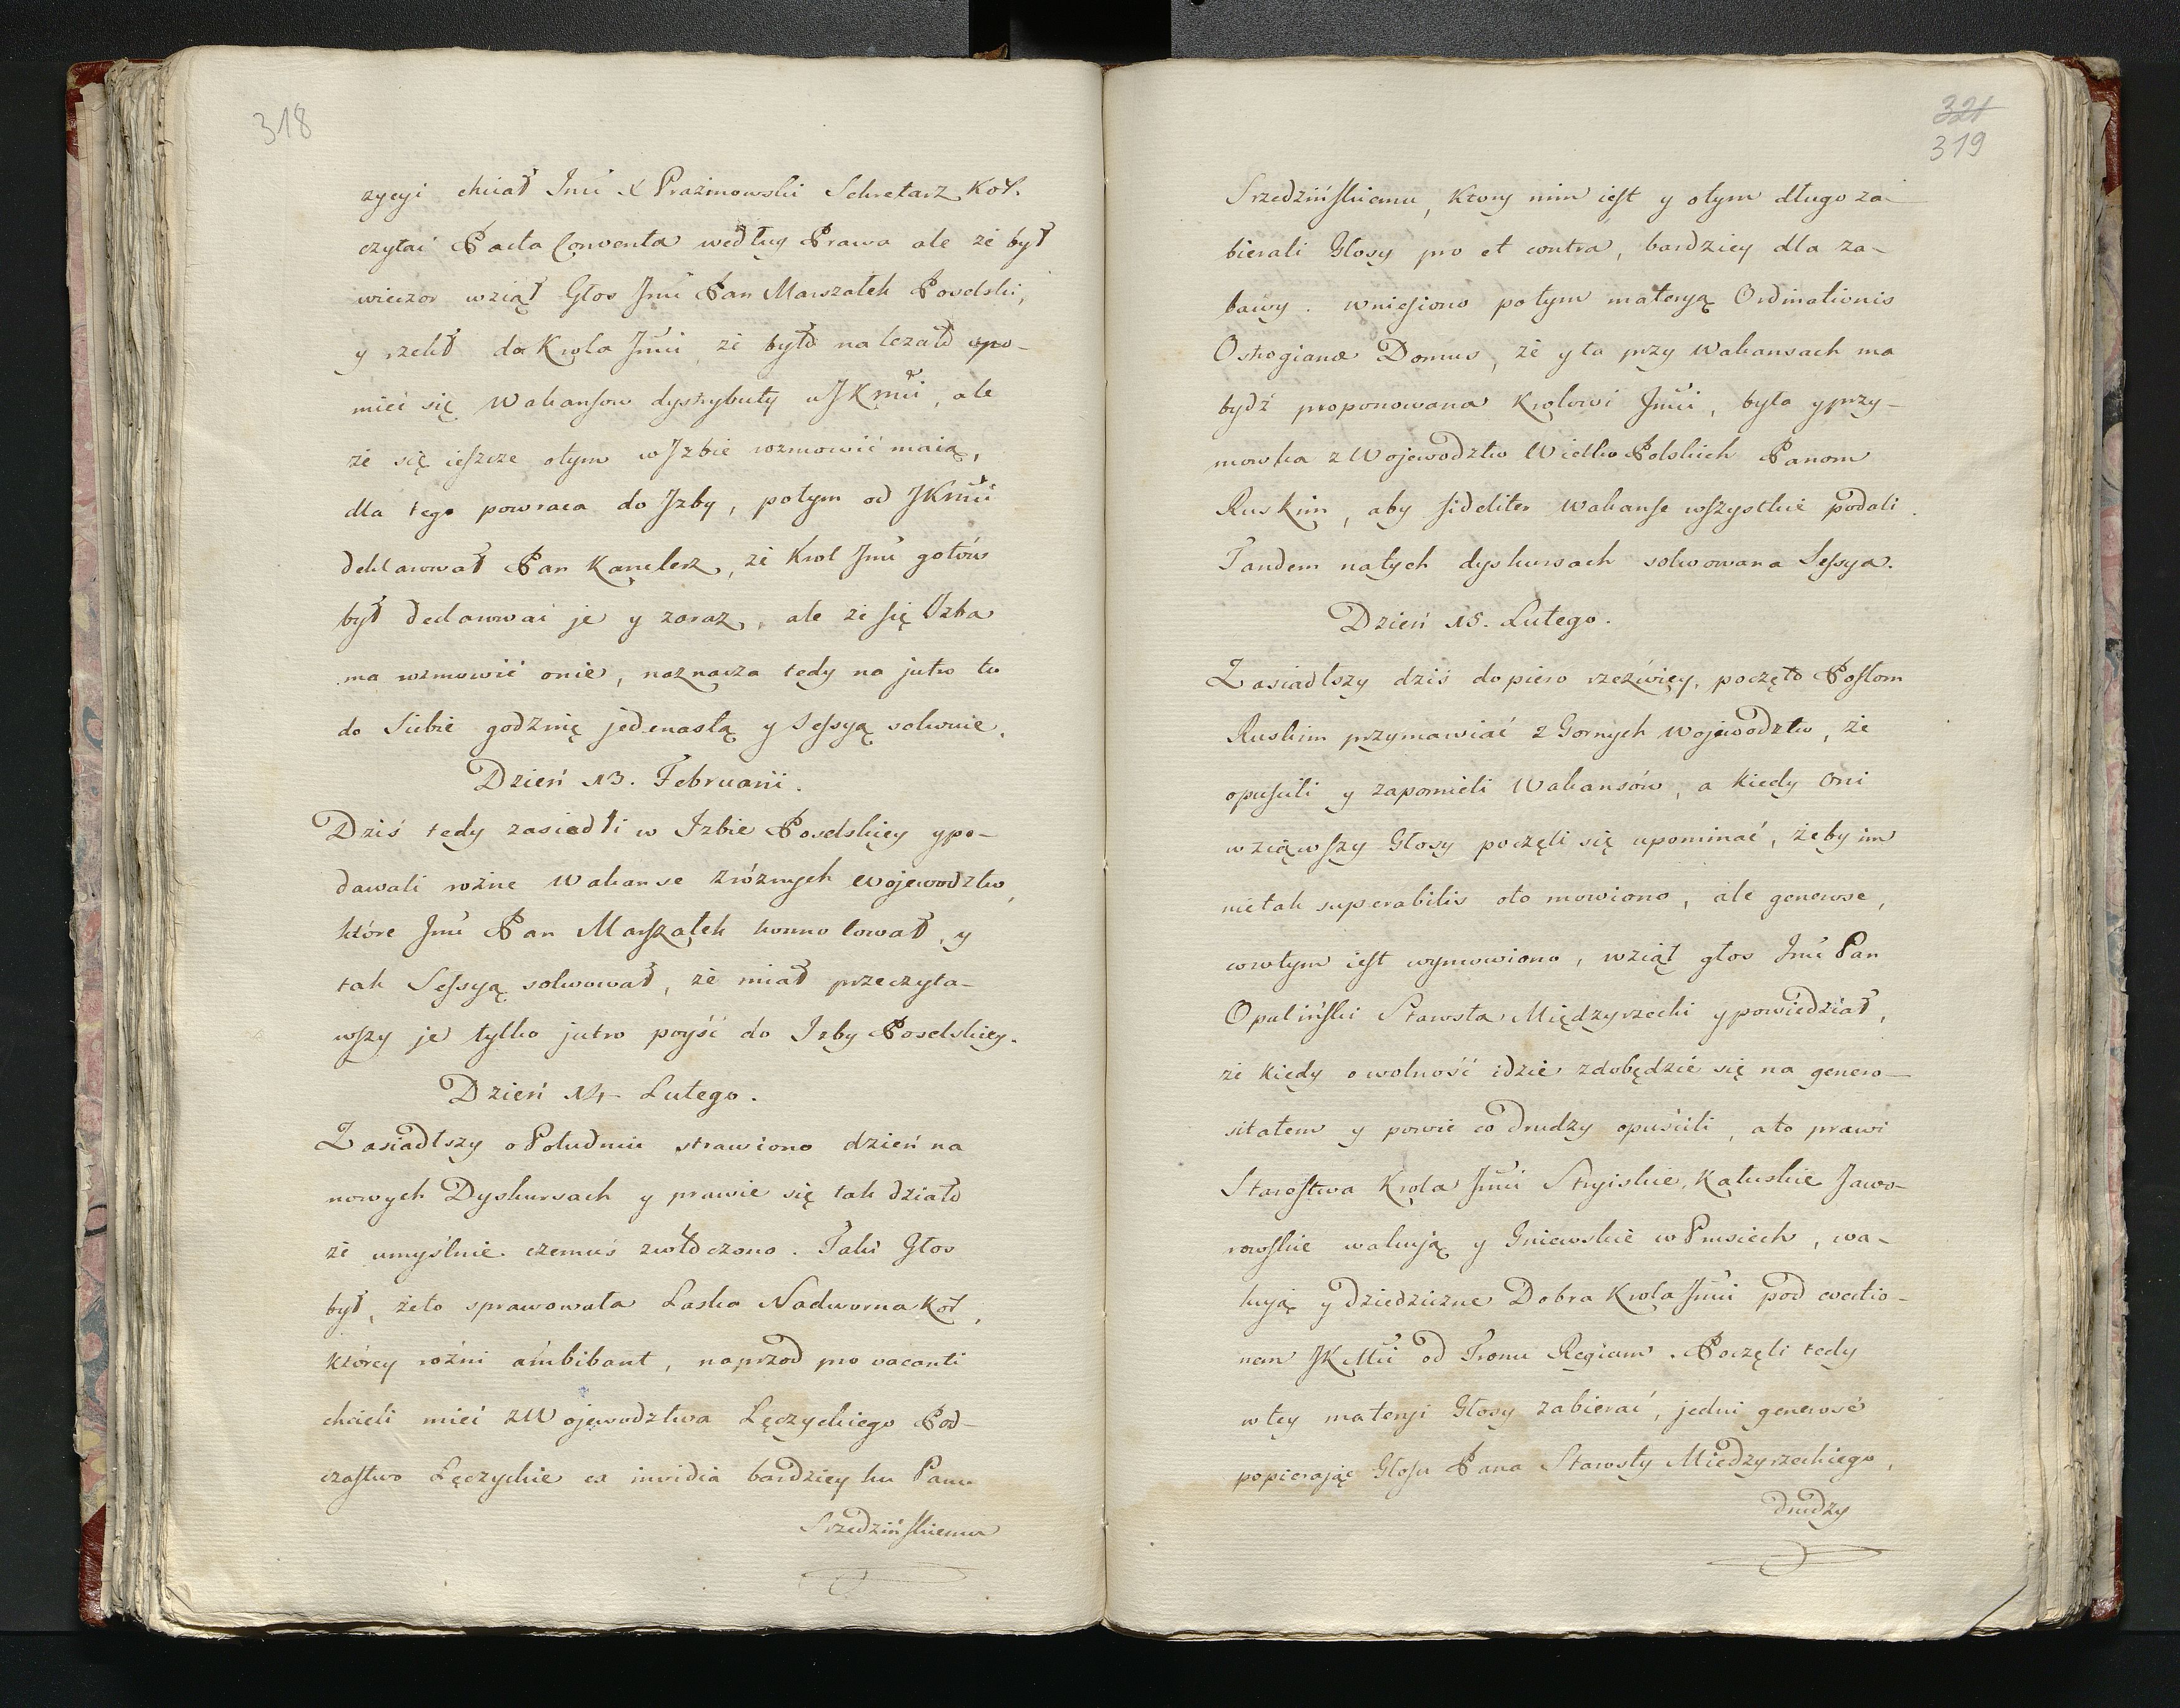 318
zycyi chciał Jmć X Prażmowski Sekretarz Kor.
czytać Pacta Conventa według Prawa ale że był
wieczor wziął Głos Jmć Pan Marszałek Poselski,
y rzekł do Krola Jmci że było należało upo-
mieć się Wakansow dystrybuty u JKmći, ale
że się ieszcze otym w Jzbie rozmowić maią,
dla tego powraca do Jzby, potym od JKmći
deklarował Pan Kanclerz, że Krol Jmć gotów
był declarować je y zaraz, ale że się Izba
ma rozmowić onie, naznacza tedy na jutro tu
do Siebie godzinę jedenastą y Sessyą solwuie.
Dzień 13. Februarii.
Dziś tedy zasiedli w Izbie Poselskiey y po-
dawali rożne Wakanse z rożnych Wojewodztw,
które Jmć Pan Marszałek konnotował, y
tak Sessyą solwował, że miał przeczyta-
wszy je tylko jutro poyść do Izby Poselskiey.
Dzień 14 Lutego.
Zasiadłszy o Południu strawiono dzień na
nowych Dyskursach y prawie się tak działo
że umyślnie czemuś zwłóczono. Taki Głos
był, że to sprawowała Laska Nadworna Kor,
którey rożni ambibant, naprzod pro vacanti
chcieli mieć z Wojewodztwa Łęczyckiego Pod-
czastwo Łęczyckie ex invidia bardziey ku Panu
Srzedzińskiemu
321
319
Srzedzińskiemu, ktory nim iest y otym długo za-
bierali Głosy pro et contra, bardziey dla za-
bawy. wniesiono potym materyą Ordinationis
Ostrogianæ Domus, że y ta przy Wakansach ma
bydź proponowana Krolowi Jmći, była y przy-
mowka z Wojewodztw Wielko Polskich Panom
Ruskim, aby fideliter Wakanse wszystkie podali.
Tandem na tych dyskursach solwowana Sessya.
Dzień 15. Lutego.
Zasiadłszy dziś dopiero rzeźwiey, poczęto Posłom
Ruskim przymawiać z Gornych Wojewodztw, że
opuścili y zapomieli Wakansów, a kiedy Oni
wziąwszy Głosy poczęli się upominać, żeby im
nie tak superabilis oto mowiono, ale generose,
co w tym iest wymowiono, wziął głos Jmć Pan
Opaliński Starosta Międzyrzecki y powiedział,
że kiedy o wolność idzie zdobędzie się na genero-
sitatem y powie co drudzy opuścili, a to prawi
Starostwa Krola Jmći Stryiskie, Kałuskie Jawo-
rowskie wakują y Gniewskie w Prusiech, wa-
kują y dziedziczne Dobra Krola Jmći pod evectio-
nem JKMći od Tronu Regium. Poczęli tedy
w tey materyi Głosy zabierać, jedni generosè
popierając Głosu Pana Starosty Miedzyrzeckiego,
drudzy